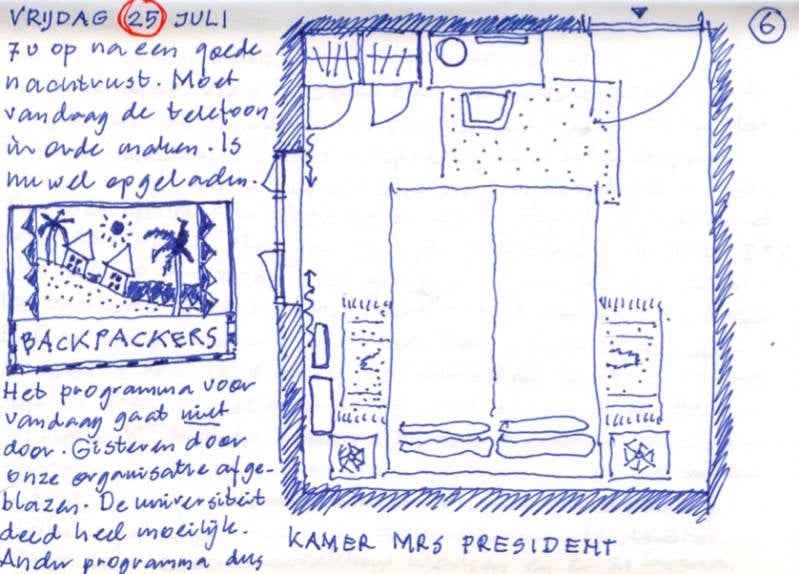 VRIJDAG 25 JULI
6
7u op na een goede
nachtrust. Moet
vandaag de telefoon
in orde maken. Is
nu wel opgeladen.
BACKPACKERS
Het programma voor
vandaag gaat niet
door. Gisteren door
onze organisatie afge-
blazen. De universiteit
deed heel moeilijk.
Ander programma dus
KAMER MRS PRESIDENT